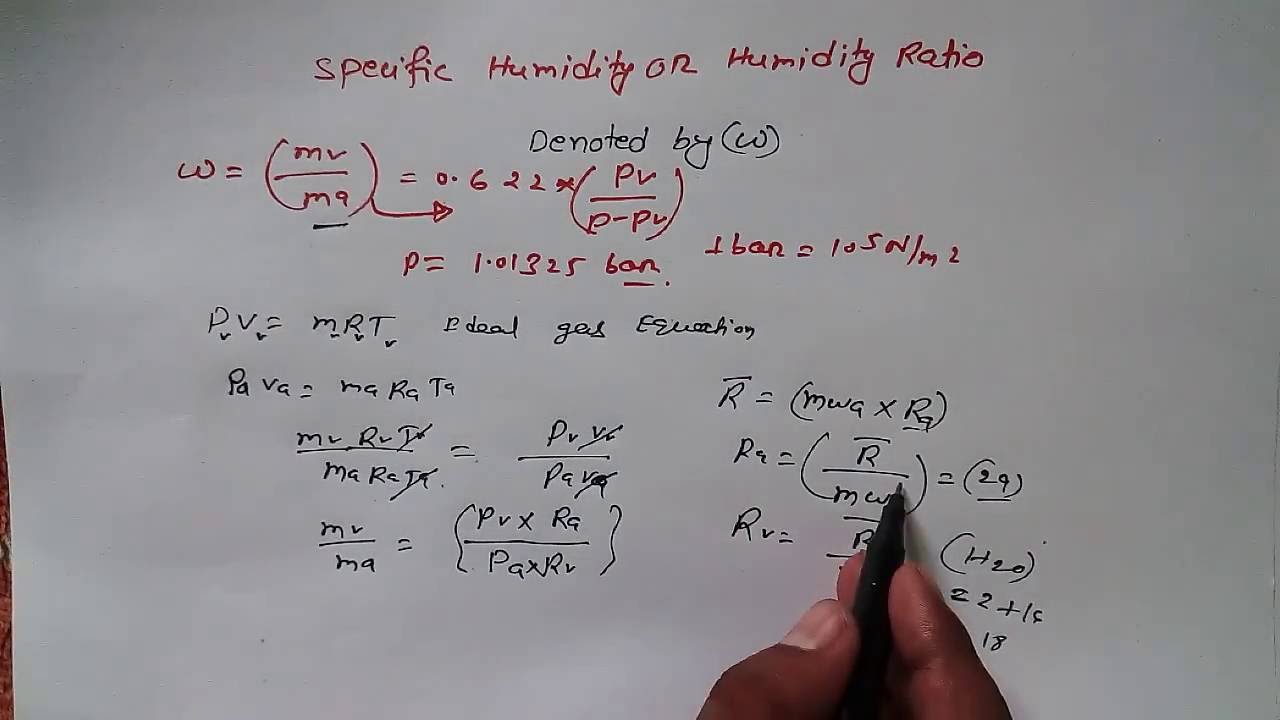 Specific Humidity OR Humidity Ratio
Denoted by (ω)
ω = (mv/ma) = 0.622 × (Pv/P-Pv)
P = 1.01325 bar. 1 bar = 10 5 N/m 2
PvVv = mvRvTv Ideal gas Equation
Pa Va = ma Ra Ta
mv Rv Tv/ma Ra Ta = Pv Vv/Pa Va
mv/ma = {Pv × Ra/Pa × Rv}
R̅ = (mwa × Ra)
Ra = (R̅/mw) = (29)
Rv =
(H2O)
= 2 + 16
18